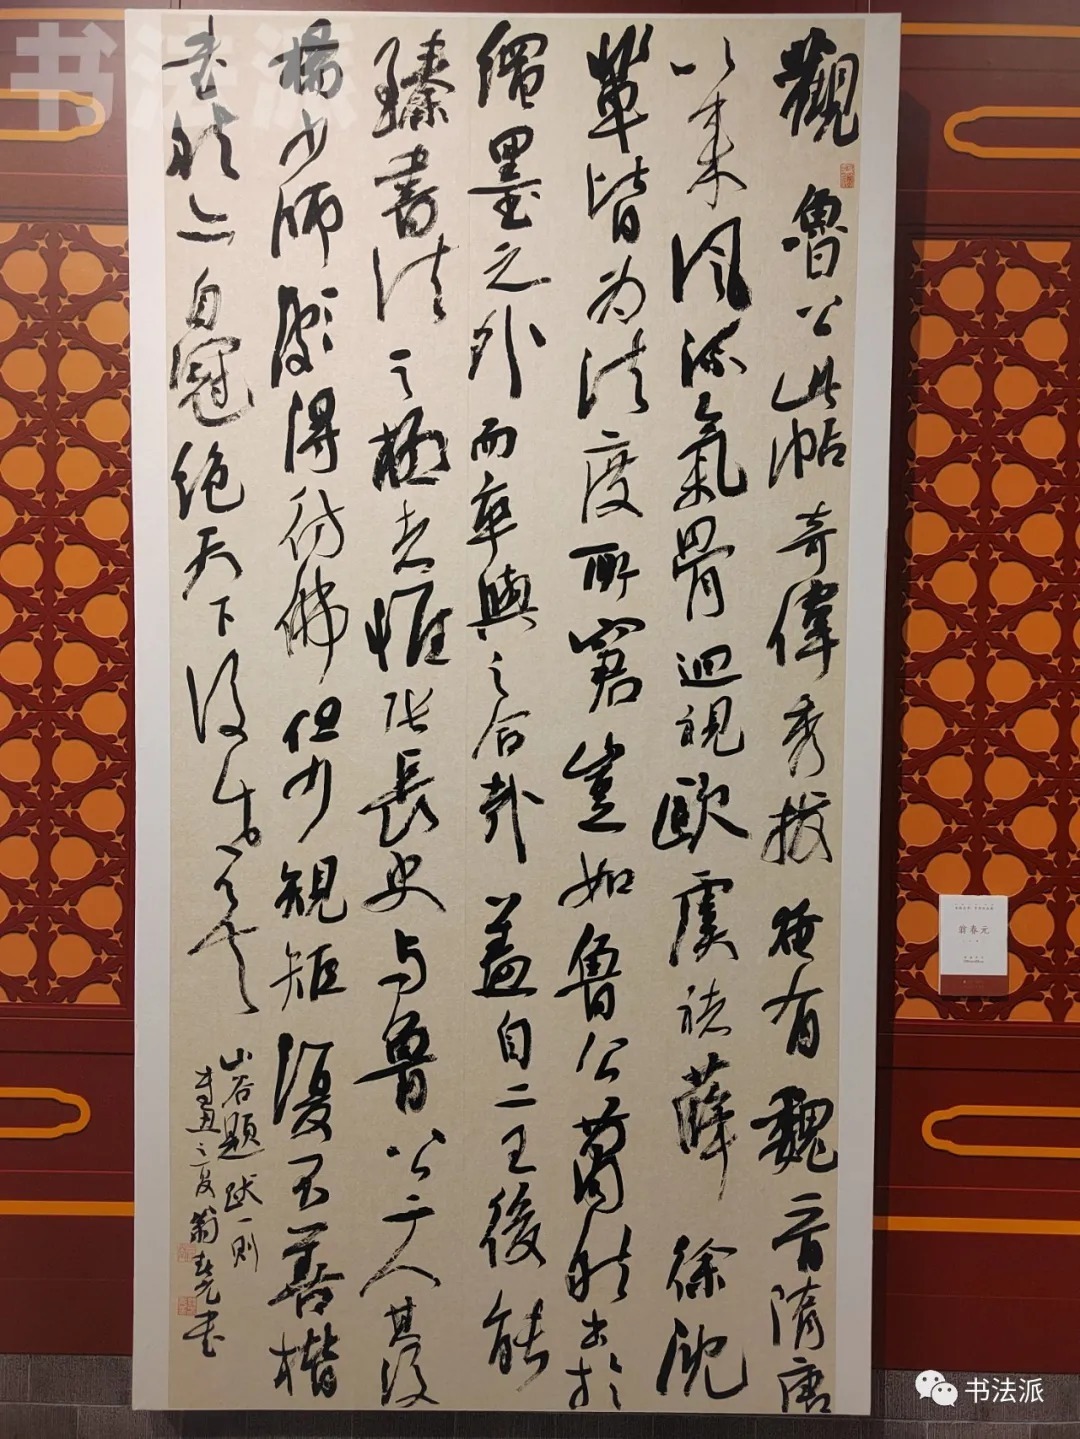 觀魯公此帖奇偉秀拔奄有魏晉隋唐
以来風流氣骨迴視歐虞褚薛徐沈
輩皆为法度所窘豈如魯公蕭然出於
繩墨之外而卒與之合哉蓋自二王後能
臻書法之極者惟張長史与魯公二人其後
楊少師頗得仿佛但少規矩復不善楷
书然亦自冠绝天下後世矣
山谷題跋一則
辛丑之夏翁春元书
翁春元
书法派
书法派